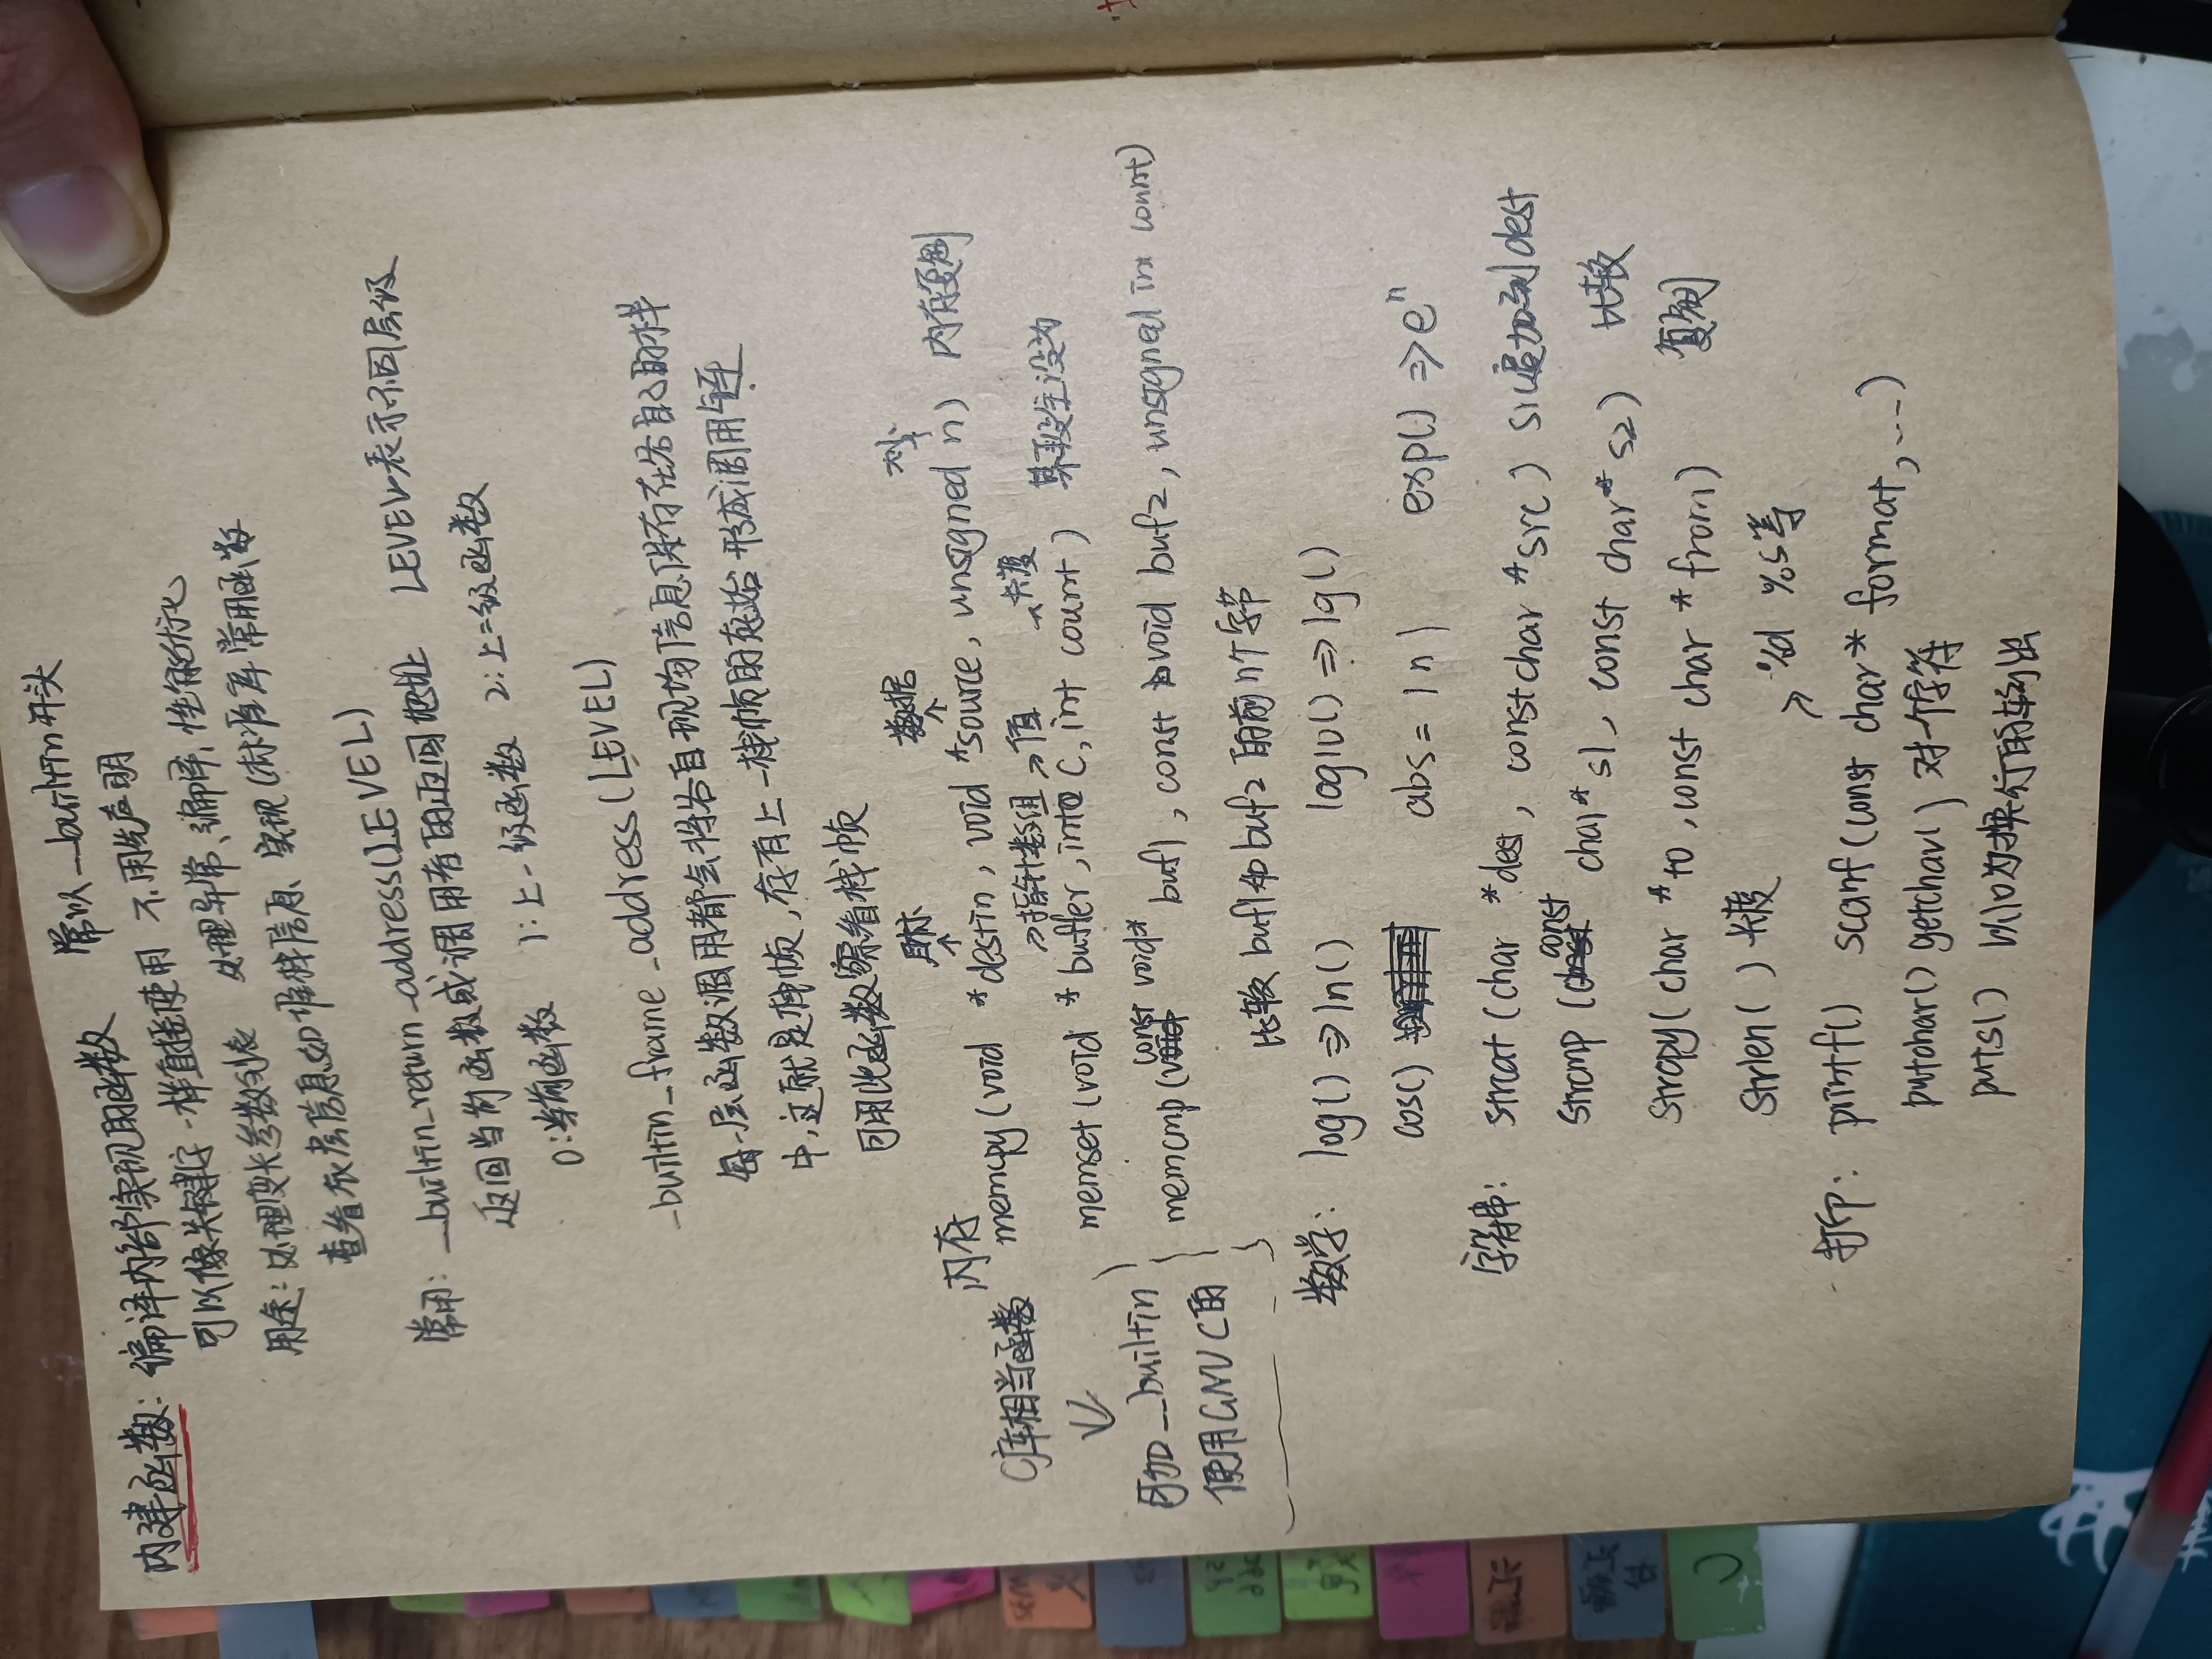 内建函数: 编译内部实现的函数 常以__builtin开头
可以像关键字一样直接使用 不用先声明
用途: 处理变长参数列表 处理异常、编译、性能优化
查看底层信息如堆栈信息、实现C标准库常用函数
常用: __builtin_return_address(LEVEL)
返回当前函数或调用者的返回地址 LEVEL表示不同层级
0:当前函数 1:上一级函数 2:上二级函数
_builtin_frame_address(LEVEL)
每一层函数调用都会将各自现场信息保存在各自的栈
中,这就是栈帧,存有上一栈帧的起始 形成调用链
可用此函数察看栈帧
目标 数据 大小
内存 memcpy(void *destin, void *source, unsigned n) 内存复制
C库相当函数
指针数组 值 长度
memset(void *buffer, int C, int count) 某段全设为
可加__builtin
使用GNU C的
memcmp(const void* buf1, const void buf2, unsigned int count)
比较 buf1和buf2 的前n个字节
数学: log()⇒ln() log10()⇒lg()
cos() abs=|n| exp()⇒eⁿ
字符串: strcat(char *dest, const char *src) src叠加到dest
strcmp(const char* s1, const char* s2) 比较
strcpy(char *to, const char *from) 复制
strlen( ) 长度
%d %s等
打印: printf() scanf(const char* format, ...)
putchar() getchar() 对一个字符
puts() 以\0为换行的输出